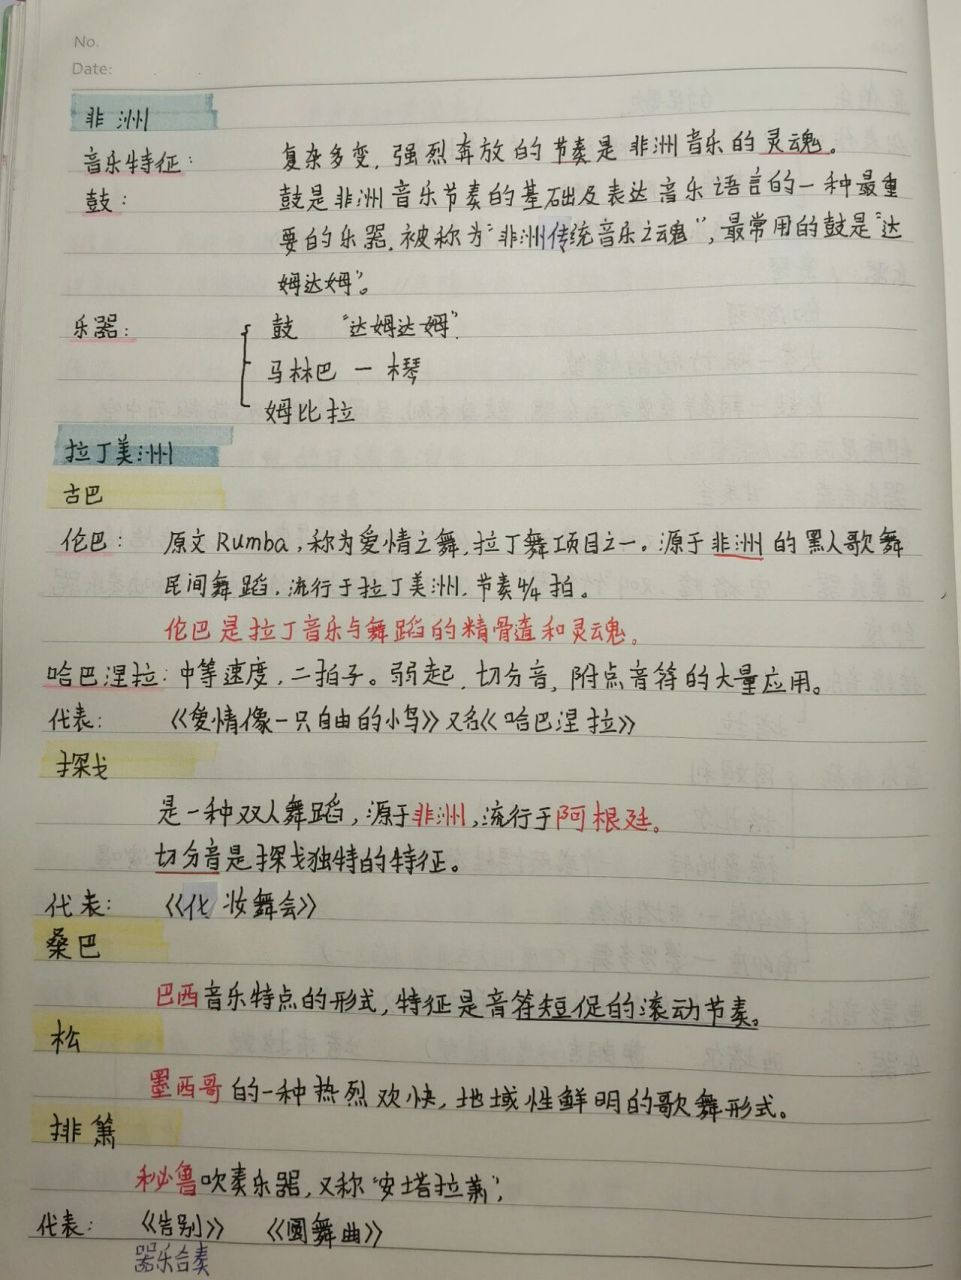 No.
Date:
非洲
音乐特征: 复杂多变,强烈奔放的节奏是非洲音乐的灵魂。
鼓: 鼓是非洲音乐节奏的基础及表达音乐语言的一种最重
要的乐器.被称为“非洲传统音乐之魂”,最常用的鼓是“达
姆达姆”。
乐器: 鼓 “达姆达姆”.
马林巴 — 木琴
姆比拉
拉丁美洲
古巴
伦巴: 原文Rumba,称为爱情之舞,拉丁舞项目之一。源于非洲的黑人歌舞
民间舞蹈,流行于拉丁美洲.节奏4/4拍。
伦巴是拉丁音乐与舞蹈的精骨渣和灵魂。
哈巴涅拉: 中等速度,二拍子。弱起,切分音,附点音符的大量应用。
代表: 《爱情像一只自由的小鸟》又名《哈巴涅拉》
探戈
是一种双人舞蹈,源于非洲,流行于阿根廷。
切分音是探戈独特的特征。
代表: 《化妆舞会》
桑巴
巴西音乐特点的形式,特征是音符短促的滚动节奏。
松
墨西哥的一种热烈欢快,地域性鲜明的歌舞形式。
排箫
秘鲁吹奏乐器,又称“安塔拉萧”,
代表: 《告别》 《圆舞曲》
器乐合奏